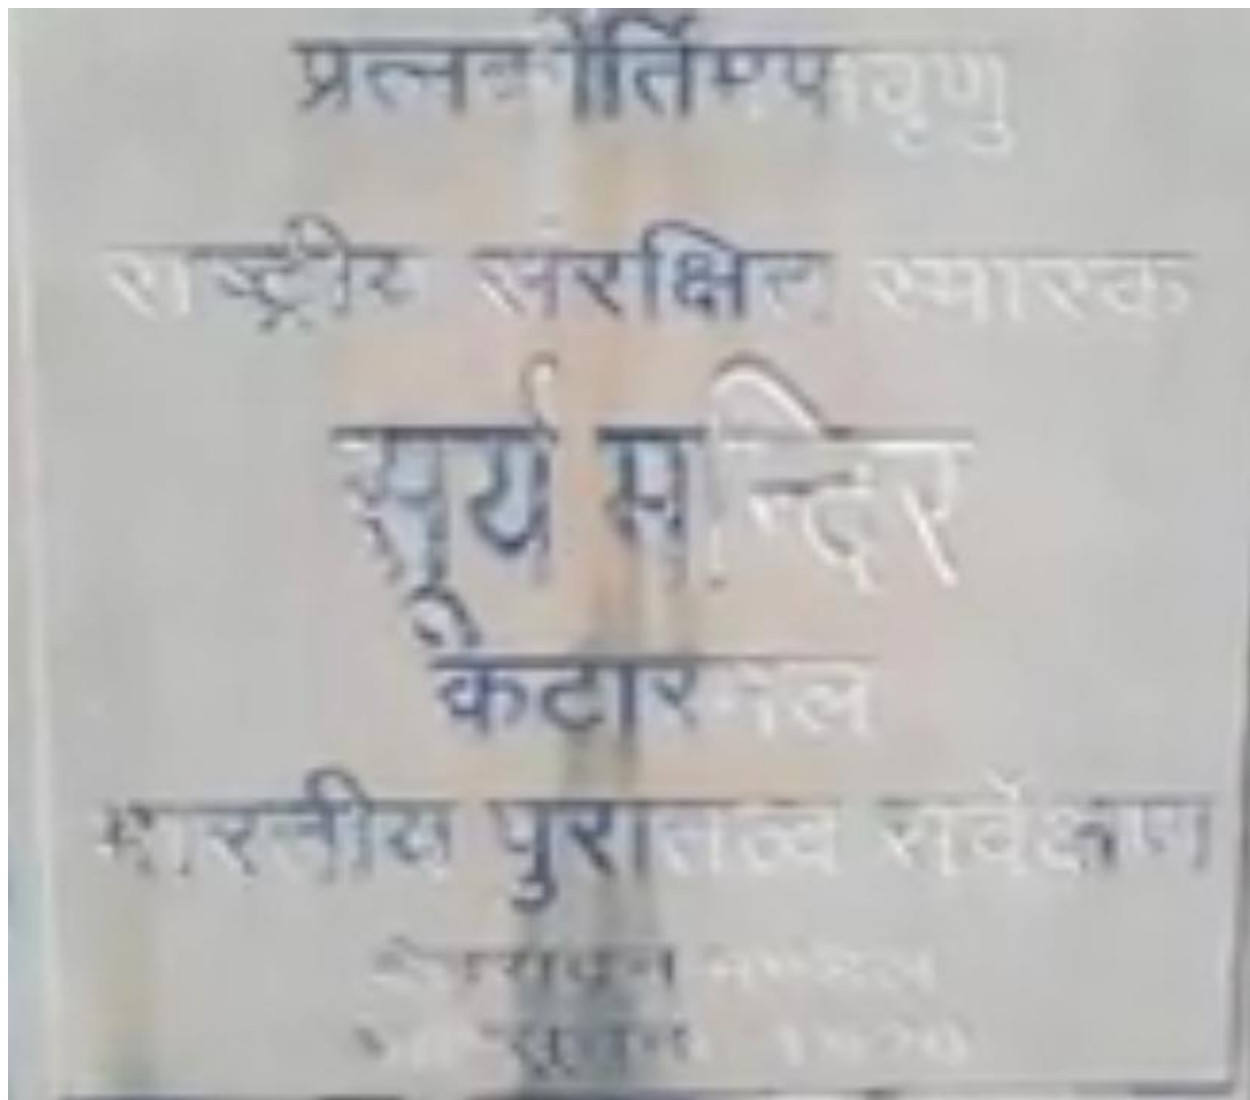 प्रत्नकीर्तिमपावृणु
राष्ट्रीय संरक्षित स्मारक
सूर्य मन्दिर
कटारमल
भारतीय पुरातत्व सर्वेक्षण
मण्डल